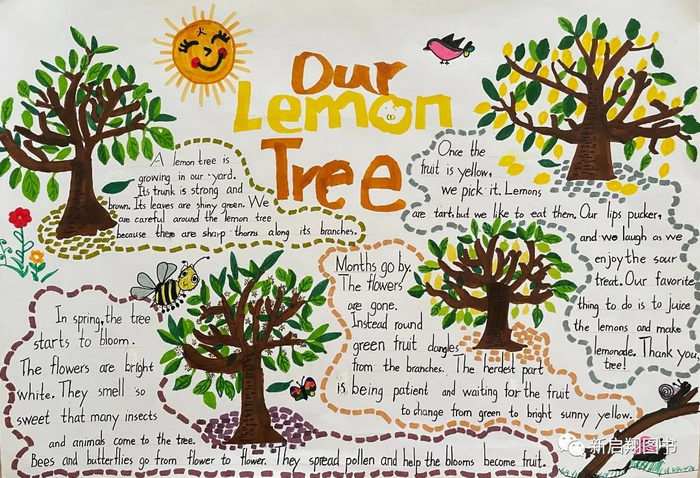 Our
Lemon
Tree
A lemon tree is
growing in our yard.
Its trunk is strong and
brown. Its leaves are shiny green. We
are careful around the lemon tree
because there are sharp thorns along its branches.
In spring, the tree
starts to bloom.
The flowers are bright
white. They smell so
sweet that many insects
and animals come to the tree.
Bees and butterflies go from flower to flower. They spread pollen and help the blooms become fruit.
Months go by.
The flowers
are gone.
Instead round
green fruit dangles
from the branches. The herdest part
is being patient and waiting for the fruit
to change from green to bright sunny yellow.
Once the
fruit is yellow,
we pick it. Lemons
are tart, but we like to eat them. Our lips pucker,
and we laugh as we
enjoy the sour
treat. Our favorite
thing to do is to juice
the lemons and make
lemonade. Thank you,
tree!
新启翔图书